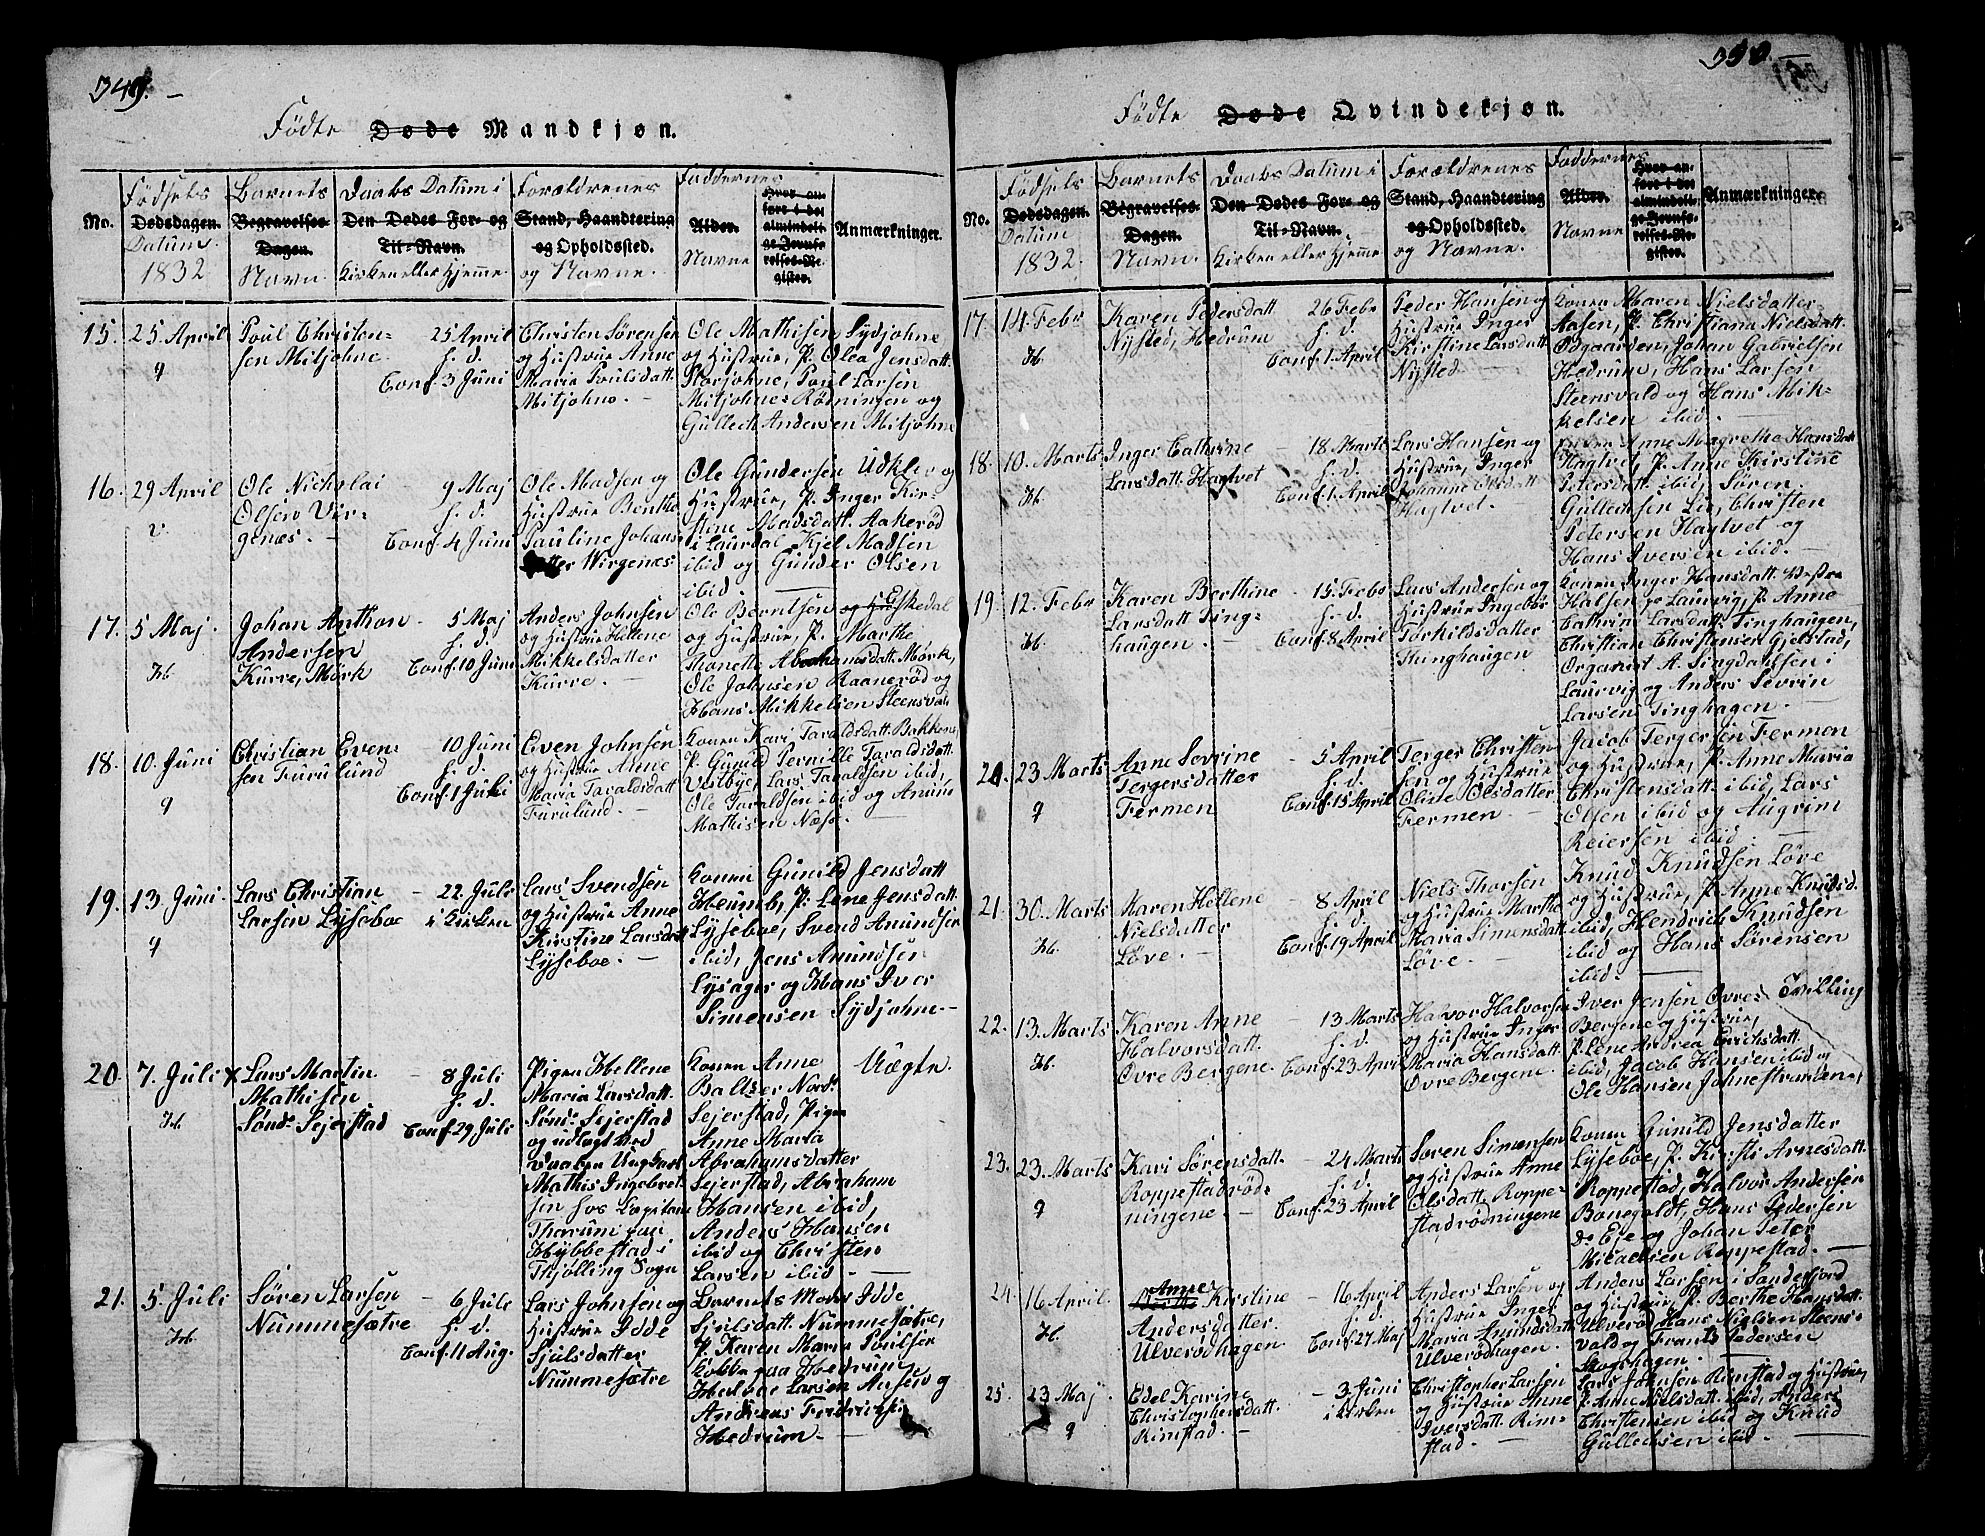 349.
Fødte Døde Mandkjøn.
No.
Fødsels
Dødsdagen.
Datum.
1832
Barnets
Begravelses-
Dagen.
Navn.
Daabs Datum i
Den Dødes For- og
Til-Navn.
Kirken eller Hjemme
Forældrenes
Stand, Haandtering
og Opholdssted.
og Navne.
Faddernes
Alder.
Navne
Hvor an-
ført i det
almindeli-
ge Jevnfø-
relses-Re-
gister.
Anmærkninger.
15. 25 April
q
Poul Christen-
sen Mitjohne
25 April
h. d.
Conf. 3 Juni
Christen Sørensen
og Hustrue Anne
Maria Poulsdatt.
Mitjohne. —
Ole Mathisen Sydjohne
og Hustrue, P. Olea Jensdatt.
Storjohne, Poul Larsen
Mitjohne Rømingen og
Gullech Andersen Mitjohne
16. 29 April
v.
Ole Nicholai
Olsen Vir-
genæs. —
9 Maj
h. d.
Conf. 4 Juni
Ole Madsen og
Hustrue Benthe
Pauline Johans-
datter Wirgenæs
Ole Gundersen Udklev og
Hustrue, P. Inger Kir-
stine Madsdatt. Aakerød
i Laurdal Kjel Madsen
ibid og Gunder Olsen
ibid. —
17. 5 Maj
Hb.
Johan Anthon
Andersen
Kurre, Mørk
5 Maj
h. d.
Conf. 10 Juni
Anders Johnsen
og Hustrue Hellene
Mikkelsdatter
Kurre. —
Ole Berntsen og Hu Eskedal
og Hustrue, P. Marthe
Thonette Abrahamsdatt. Mørk,
Ole Johnsen Raanerød og
Hans Mikkelsen Steensvald
18. 10. Juni
q
Christian Even-
sen Furulund
10 Juni
h. d.
Conf. 1 Juli
Even Johnsen
og Hustrue Anne
Maria Taraldsdatt
Furulund. —
Konen Kari Taraldsdatt. Bakken,
P. Gunild Pernille Taraldsdatt.
Vestbye, Lars Taraldsen ibid,
Ole Taraldsen ibid og Anum
Mathisen Næss. —
19. 13. Juni
q
Lars Christian
Larsen Lyseboe
22 Juli
i Kirken
Lars Svendsen
og Hustrue Anne
Kirstine Larsdatt
Lyseboe. —
Konen Gunild Jensdatt
Heumb, P. Lene Jensdatt
Lyseboe, Svend Amundsen
ibid, Jens Amundsen
Lysager og Hans Iver
Simensen Sydjohne. —
20. 7. Juli x
Hb.
Lars Martin
Mathisen
Sønd. Sejerstad
8 Juli
h. d.
Conf. 29 Juli
Pigen Hellene
Maria Larsdatt.
Sønd. Sejerstad
og udlagt ved
Daaben Ungkarl
Mathis Ingebret-
sen hos Capitain
Tharum paa
Hybbestad i
Thjølling Sogn
Konen Anne
Baltzer Nord.
Sejerstad, Pigen
Anne Maria
Abrahamsdatter
Sejerstad, Abraham
Hansen ibid,
Anders Hansen
ibid og Christen
Larsen ibid. —
Uægte.
21. 5. Juli
Hb.
Søren Larsen
Nummesætre
6 Juli
h. d.
Conf. 11 Aug.
Lars Johnsen og
Hustrue Idde
Sjulsdatter
Nummesætre
Barnets Moder Idde
Sjulsdatt. Nummesætre,
P. Karen Marie Poulsen
Kobbe paa Hedrum
Halvor Larsen Aasen og
Andreas Fredrichs.
Hedrum. —
350.
Fødte Døde Qvindekjøn.
No.
Fødsels
Dødsdagen.
Datum
1832.
Barnets
Begravelses-
Dagen.
Navn.
Daabs Datum i
Den Dødes For- og
Til-Navn.
Kirken eller Hjemme
Forældrenes
Stand, Haandtering
og Opholdssted.
og Navne.
Faddernes
Alder.
Navne
Hvor an-
ført i det
almindeli-
ge Jevnfø-
relses-Re-
gister.
Anmærkninger.
17. 14. Febr
Hb.
Karen Pedersdatt
Nysted, Hedrum
26 Febr
h. d.
Conf. 1. April
Peder Hansen og
Hustrue Inger
Kirstine Larsdatt
Nysted —
Konen Maren Nielsdatter
Aasen, P. Christiana Nielsdatt
Odgaarden, Johan Gabrielsen
Hedrum, Hans Larsen
Steensvald og Hans Mik-
kelsen ibid. —
18. 10. Marts
Hb.
Inger Cathrine
Larsdatt. Hagtvet
18 Marts
h. d.
Conf. 1. April
Lars Hansen og
Hustrue, Inger
Johanne Olsdatt
Hagtvet. —
Konen Anne Magrethe Hansdatt
Hagtvet, P. Anne Kirstine
Petersdatt. ibid, Søren
Gullechsen Lie, Christen
Petersen Hagtvet og
Hans Iversen ibid. —
19. 12. Febr
Hb.
Karen Berthine
Larsdatt Ting-
haugen. —
15. Febr
h. d.
Conf. 8 April
Lars Andersen og
Hustrue Ingebor
Torkildsdatter
Thinghaugen
Konen Inger Hansdatt. Vestre
Halsen ved Laurvig, P. Anne
Cathrine Larsdatt. Tinghaugen,
Christian Christensen Gjelstad,
Organist A. Lingdahlsen i
Laurvig og Anders Sevrin
Larsen Tinghagen. —
20. 23 Marts
q
Anne Sevrine
Tergersdatter
Fermen
5 April
h. d.
Conf. 15 April
Terger Christen-
sen og Hustrue
Olive Olsdatter
Fermen —
Jacob Tergersen Fermen
og Hustrue, P. Anne Maria
Christensdatt. ibid, Lars
Olsen ibid og Augrim
Reiersen ibid. —
21. 30. Marts
Hb.
Maren Hellene
Nielsdatter
Løve. —
8 April
h. d.
Conf. 19 April
Niels Thorsen
og Hustrue Marthe
Maria Simensdatt
Løve. —
Knud Knudsen Løve
og Hustrue, P. Anne Knudsd.
ibid, Hendrich Knudsen
ibid og Hans Sørensen
ibid. —
22. 13. Marts
Hb.
Karen Anne
Halvorsdatt.
Øvre Bergene.
13 Marts
h. d.
Conf. 23 April
Halvor Halvorsen
og Hustrue Inger
Maria Hansdatt.
Øvre Bergene. —
Iver Jensen Øvre
Bergene og Hustrue,
P. Lene Andrea Erichsdatt.
ibid, Jacob Hansen ibid og
Ole Hansen Johnestranden,
Tvilling
23. 23. Marts
q
Kari Sørensdatt.
Roppestadrød-
ningene. —
24 Marts
h. d.
Conf. 23 April
Søren Simensen
og Hustrue Anne
Olsdatt. Roppe-
stadrødningene
Konen Gunild Jensdatter
Lyseboe, P. Kirsti Arnesdatt.
Roppestad, Halvor Andersen
Bonegoldt, Hans Pedersen
ds Eje og Johan Peter
Micaelsen Roppestad. —
24. 16 April.
Hb.
Anne
Kirstine
Andersdatter.
Ulverødhagen
16 April
h. d.
Conf. 27 Maj
Anders Larsen og
Hustrue Inger
Maria Amundsdatt
Ulverødhagen.
Anders Larsen i Sandefjord
og Hustrue, P. Berthe Hansdatt
Ulverød, Hans Nielsen Steens-
vald og Frants Pedersen
Skogshagen. —
25. 23 Maj
q
Edel Karine
Christophersdatt.
Rimstad. —
3 Juni
i Kirken
Christopher Larsen
og Hustrue Anne
Iversdatt. Rim-
stad. —
Lars Johnsen Rimstad og Hustrue,
P. Anne Nielsdatt. ibid, Anders
Christensen ibid og Knud
Gullechsen ibid. —